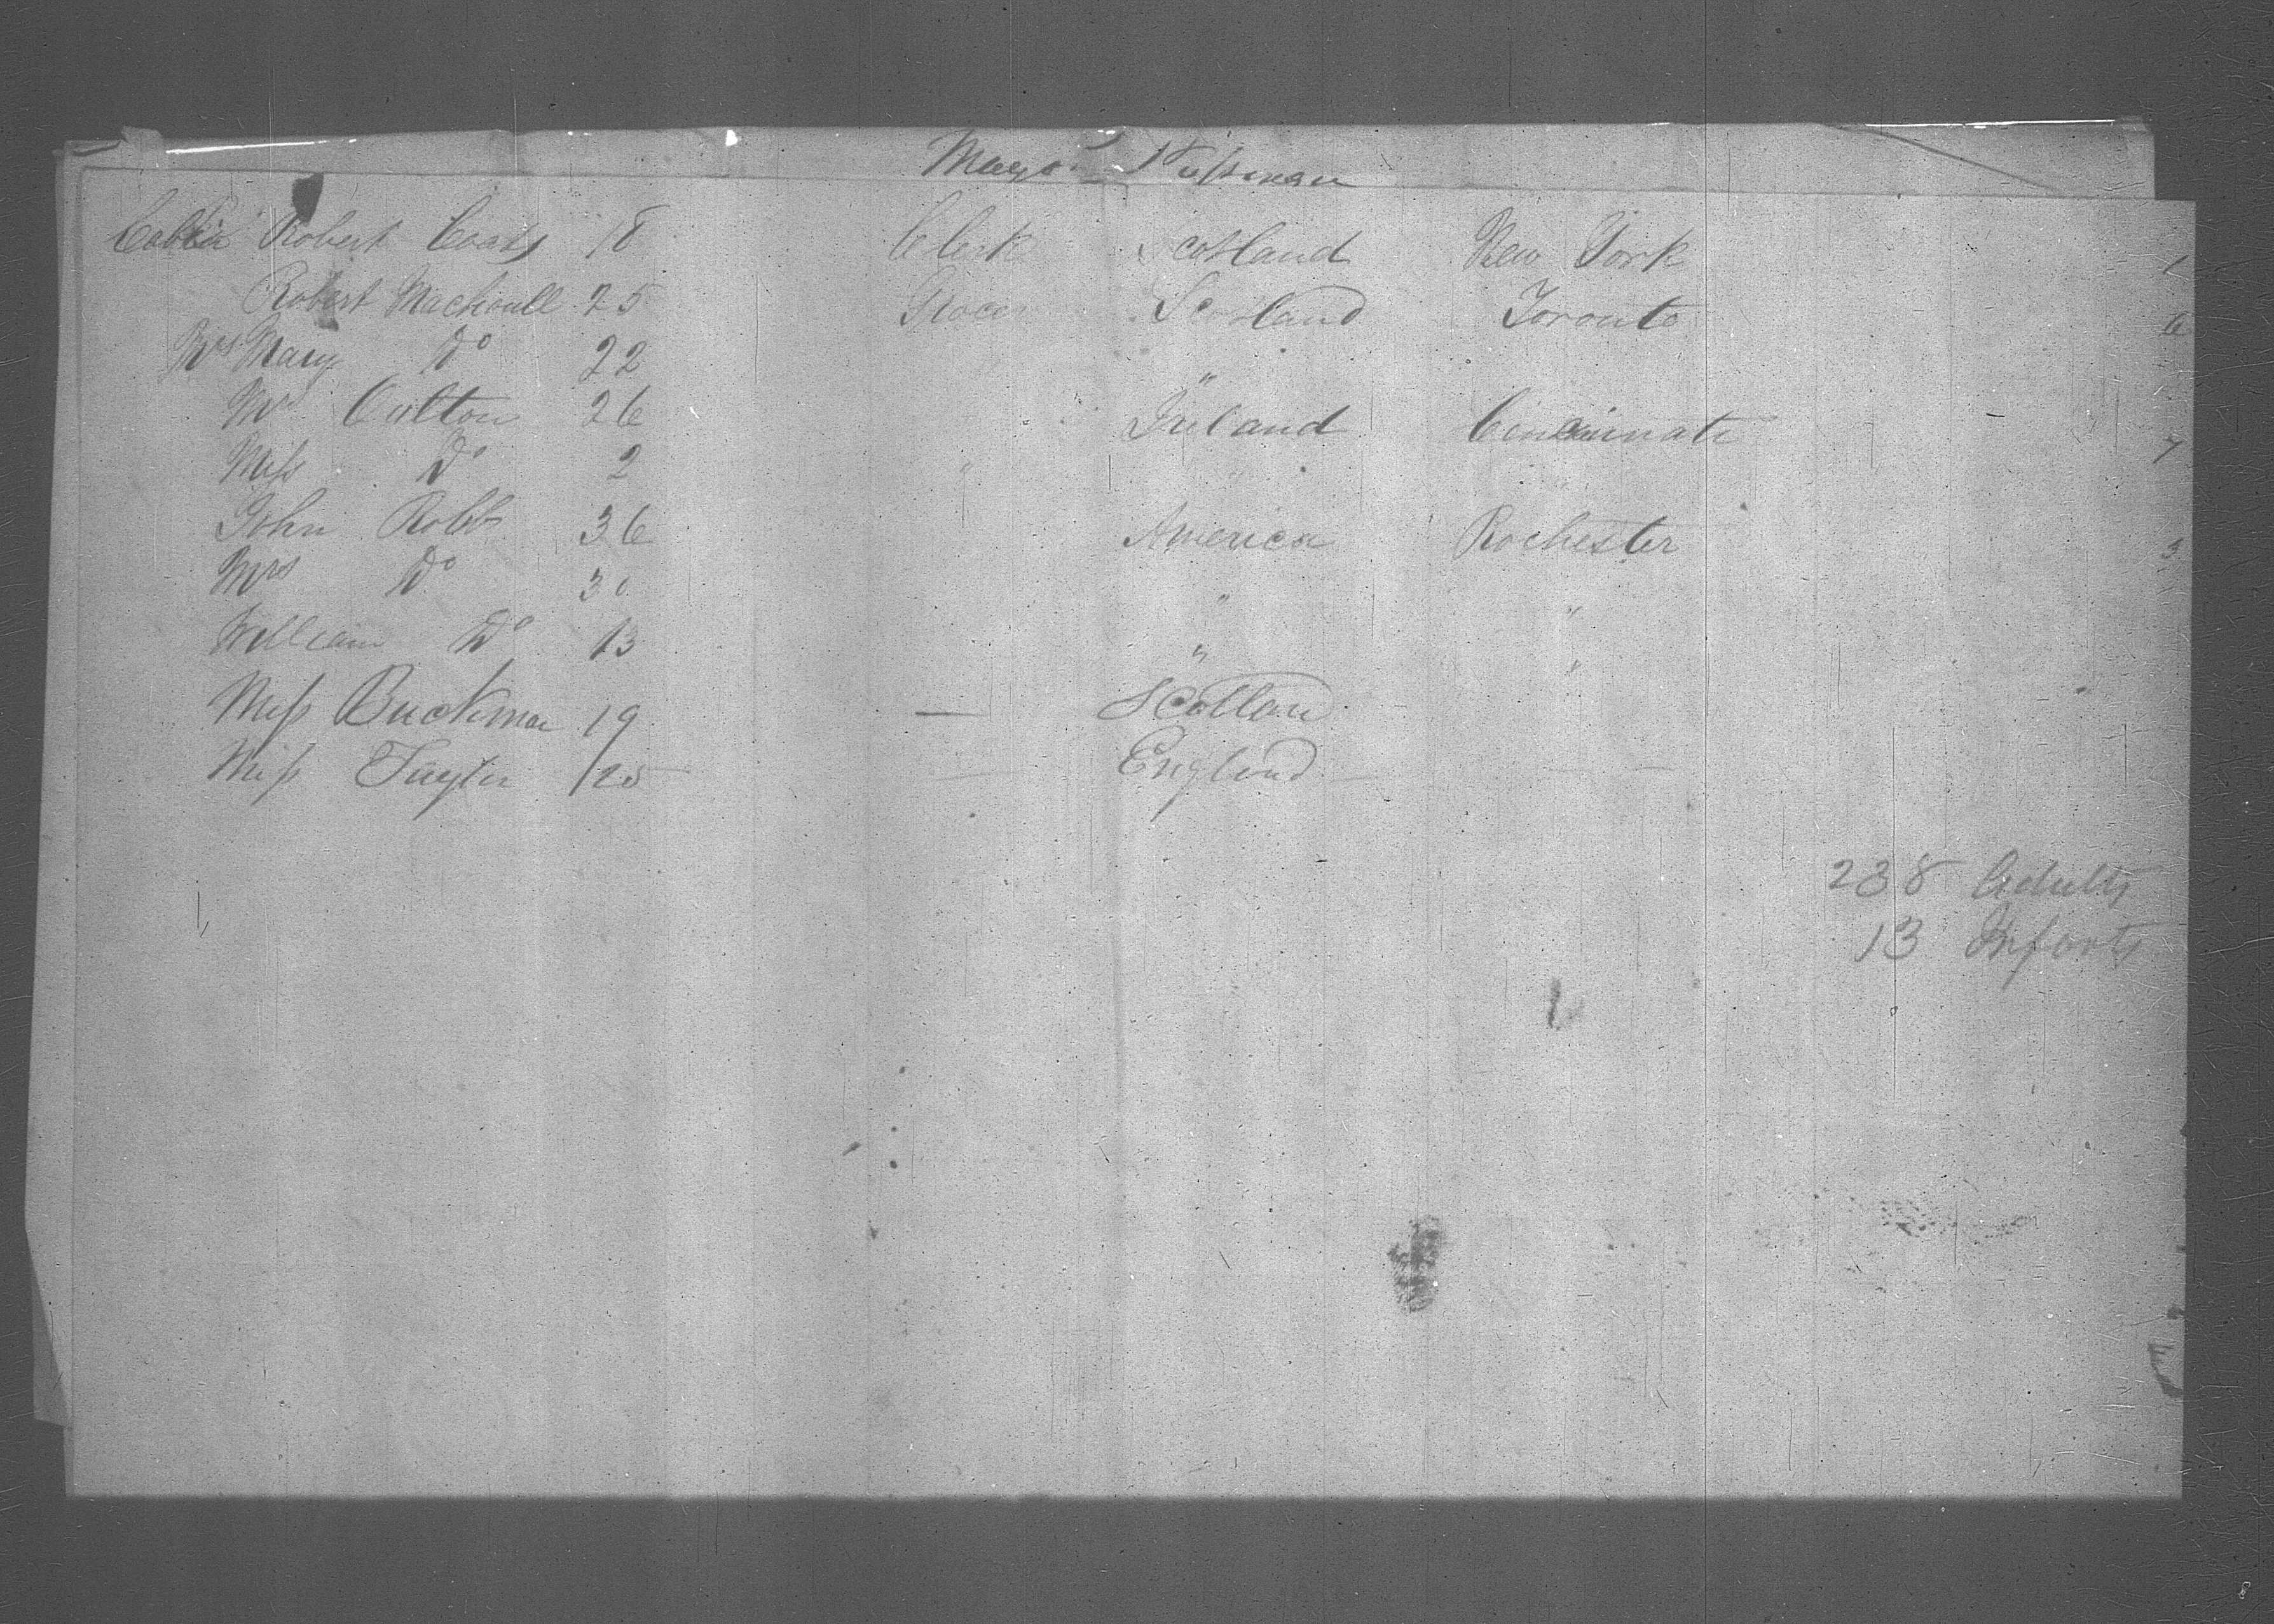 Cabin Robert Coats 18 Clerk Scotland New York 1
Robert 25 Grocer Scotland Toronto 6
Mrs Mary Do 22 "
Mrs Culton 26 Ireland Cincinnati 7
Miss Do 2 " "
John Robb 36 " America Rochester 3
Mrs Do 30 " "
William Do 13 " "
Miss Buckman 19 — Scotland
Miss Taylor 25 — England — —
238 Adults
13 Infants